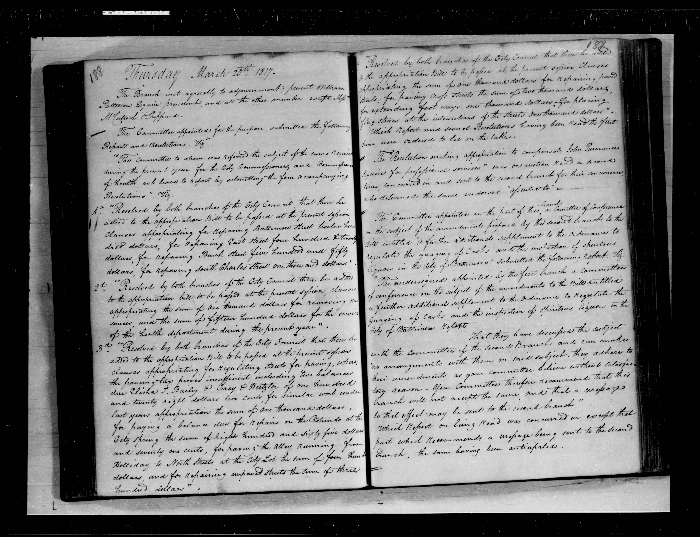 188
Thursday March 20th 1817.
The Branch met agreeably to adjournment, present William
Patterson Esquire president and all the other members except
McCulloch & Sheppard.
The Committee appointed for the purpose submitted the following
Report and Resolutions. Viz
"The Committee to whom was referred the subject of the sums necessary
during the present year for the City Commissioners and Commissioners
of Health ask leave to report by submitting the form accompanying
Resolutions" Viz
1st "Resolved by both branches of the City Council that there be
added to the appropriation Bill to be passed at the present session
clauses appropriating for Repairing Baltimore street twelve hun-
dred dollars, for Repairing East street four hundred & twenty
dollars for repaving Pearl street five hundred and fifty
dollars, for repaving South Charles street one thousand dollars".
2d "Resolved by both branches of the City Council there be added
to the appropriation bill to be passed at the present session clauses
appropriating the sum of two thousand dollars for removing
and the sum of fifteen hundred dollars for the
of the health department during the present year".
3rd "Resolved by both branches of the City Council that there be
added to the appropriation Bill to be passed at the present session
clauses appropriating for regulating streets for paving, where
the paving tax proves insufficient including two balances
due Elisha S. and of one hundred
and twenty eight dollars two cents for similar work under
last years appropriation the sum of one thousand dollars,
for paying a balance due for repairs on the Rotunda at the
City Spring the sum of eight hundred and sixty five dollars
and seventy one cents, for paving the alley running from
Holliday to North Streets at the City Lot the sum of four hundred
dollars, and for repairing unpaved streets the sum of three
hundred dollars".
189
Resolved by both branches of the City Council that there be added
to the appropriation Bill to be passed at the present session clauses
appropriating the sum of one thousand dollars for repairing paved
streets, for paving cross streets the sum of two thousand dollars,
for extending foot ways one thousand dollars, for placing
flag stones at the intersections of the streets one thousand dollars".
Which Report and several Resolutions having been read the first
time were ordered to lie on the table.
The Resolution making appropriation to compensate John Purviance
Esquire for professional services was on motion read a second
time, concurred in and sent to the second branch for their concurrence
who returned the same endorsed "assented to".
The Committee appointed on the part of this branch, a Committee of Conference
on subject of the amendments proposed by the second branch to the
Bill entitled a further additional supplement to the Ordinance to
regulate the gauging of Casks and the inspection of spirituous
liquors in the City of Baltimore" submitted the following report Viz
The undersigned appointed by the first branch a committee
of conference on the subject of the amendments to the Bill entitled
a further additional supplement to the ordinance to regulate the
guaging of casks and the inspection of spirituous liquors in the
City of Baltimore Report
That they have discussed the subject
with the Committee of the second Branch and can make
no arrangements with them on said subject, they adhere to
their amendments as your committee believe without
any reason. Your Committee therefore recommend that this
branch will not accept the same and that a message
to that effect may be sent to the second branch"
Which Report on being read was concurred in except that
part which recommends a message being sent to the second
branch, the same having been anticipated.